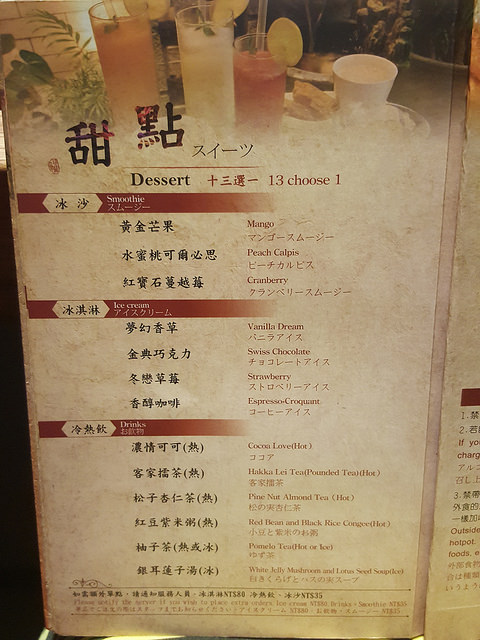 甜 點 スイーツ
Dessert 十三選一 13 choose 1
冰 沙 Smoothie
スムージー
黃金芒果 Mango
マンゴースムージー
水蜜桃可爾必思 Peach Calpis
ピーチカルピス
紅寶石蔓越莓 Cranberry
クランベリースムージー
冰淇淋 Ice cream
アイスクリーム
夢幻香草 Vanilla Dream
バニラアイス
金典巧克力 Swiss Chocolate
チョコレートアイス
冬戀草莓 Strawberry
ストロベリーアイス
香醇咖啡 Espresso-Croquant
コーヒーアイス
冷熱飲 Drinks
お飲物
濃情可可(熱) Cocoa Love(Hot)
ココア
客家擂茶(熱) Hakka Lei Tea(Pounded Tea)(Hot)
客家擂茶
松子杏仁茶(熱) Pine Nut Almond Tea (Hot)
松の実杏仁茶
紅豆紫米粥(熱) Red Bean and Black Rice Congee(Hot)
小豆と紫米のお粥
柚子茶(熱或冰) Pomelo Tea(Hot or Ice)
ゆず茶
銀耳蓮子湯(冰) White Jelly Mushroom and Lotus Seed Soup(Ice)
白きくらげとハスの実スープ
如需額外單點，請通知服務人員，冰淇淋NT$80 冷熱飲、冰沙NT$35
Please notify the server if you wish to place extra orders. Ice cream NT$80 Drinks、Smoothie NT$35
1.禁
2.若
If yo
charg
アルコ
召し上
3.禁帶
外食的
一樣加
Outside
hotpot.
foods, e
外部食物